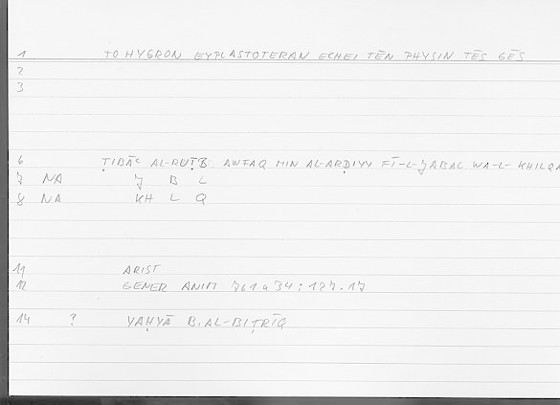 1 TO HYGRON EYPLASTOTERAN ECHEI TĒN PHYSIN TĒS GĒS
2
3
6 ṬIBĀʿ AL-RUṬB: AWFAQ MIN AL-ARḌIYY FĪ-L-JABAL WA-L-KHILQA
7 NA J B L
8 NA KH L Q
11 ARIST
12 GENER ANIM 761a34: 127.17
14 ? YAḤYĀ B. AL-BIṬRĪQ